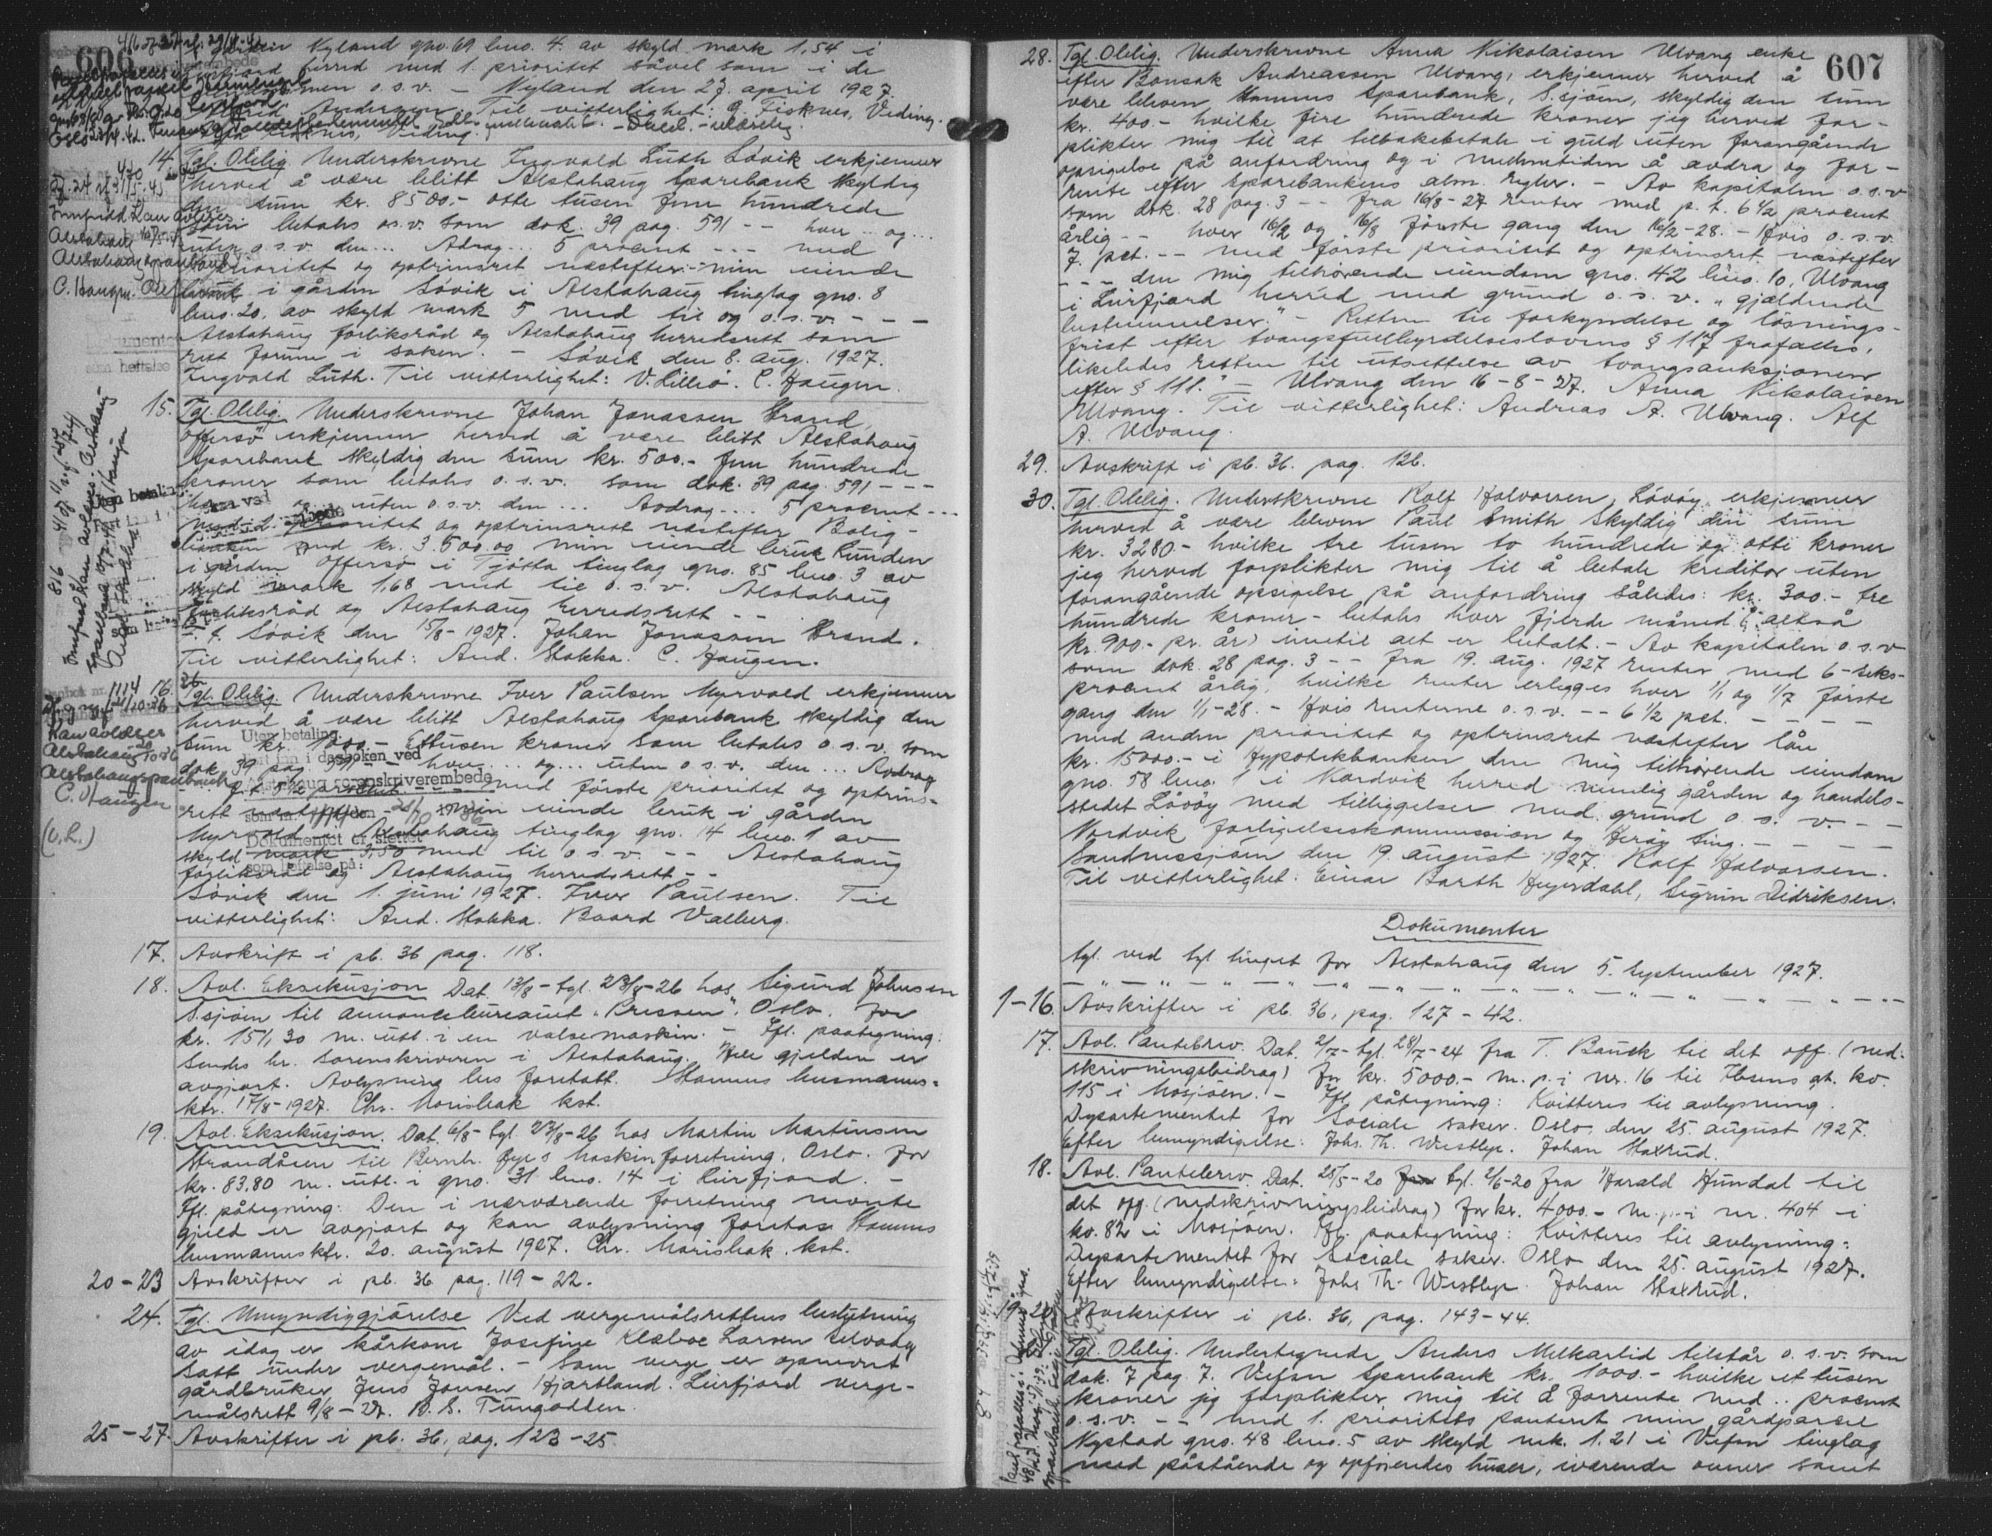 606
gården Nyland gno. 69 bno. 4. av skyld mark 1,54 i
herred med 1. prioritet såvel som i de
o.s.v. — Nyland den 27. april 1927.
Til vitterlighet: G. Fisknes, Veding.
14. Tgl. Oblig. Underskrevne Ingvald Luth Søvik erkjenner
herved å være blitt Alstahaug Sparebank skyldig
den sum kr. 8500.- otte tusen fem hundrede
som betales o.s.v. som dok. 39 pag. 591 -- hver .. og ..
uten o.s.v. den ... Avdrag ... 5 procent --- med
prioritet og optrinsret næstefter min eiende
bruk i gården Søvik i Alstahaug tinglag gno. 8
bno. 20, av skyld mark 5 med til og o.s.v. - - -
Alstahaug forliksråd og Alstahaug herredsrett som
rett forum i saken. - Søvik den 8. aug. 1927.
Ingvald Luth. Til vitterlighet: V. Lillio. C. Haugen.
15. Tgl. Oblig. Underskrevne Johan Jonassen Strand,
Offersø erkjenner herved å være blitt Alstahaug
Sparebank skyldig den sum kr. 500.- fem hundrede
kroner som betales o.s.v. som dok. 39 pag. 591 - - -
og uten o.s.v. den ... Avdrag ... 5 procent ---
med 1. prioritet og optrinsrett næstefter Bolig-
banken med kr. 3.500,00 min eiende bruk Lunden
i gården Offersø i Tjøtta tinglag gno. 85 bno. 3 av
skyld mark 1,68 med til o.s.v. Alstahaug
forliksråd og Alstahaug herredsrett - -
Søvik den 15/8-1927. Johan Jonassen Strand.
Til vitterlighet: And. Stokka. C. Haugen.
16. Tgl. Oblig. Underskrevne Iver Paulsen Myrvold erkjenner
herved å være blitt Alstahaug Sparebank skyldig den
sum kr. 1000.- Ettusen kroner som betales o.s.v. som
dok. 39 pag. 591 -- hver ... og ... uten o.s.v. den ... Avdrag
med første prioritet og optrins-
rett næstefter min eiende bruk i gården
Myrvold i Alstahaug tinglag gno. 14 bno. 1 av
skyld mark med til o.s.v. -- Alstahaug
forliksråd og Alstahaug herredsrett - -
Søvik den 1 juni 1927. Iver Paulsen. Til
vitterlighet: And. Stokka. Baard Valberg.
17. Avskrift i pb. 36 pag. 118.
18. Avl. Eksekusjon Dat. 13/8 - tgl. 23/8-26 hos Sigurd Johnsen
S.sjøen til annoncebureauet "Pressen", Oslo. for
kr. 151,30 m. utl. i en valsemaskin. - Ifl. paategning:
Sendes hr. Sorenskriveren i Alstahaug. Hele gjelden er
avgjort. Avlysning bes foretatt. Stamnes lensmanns-
ktr. 17/8-1927. Chr. Marisbak kst.
19. Avl. Eksekusjon. Dat. 6/8- tgl. 23/8-26 hos Martin Martinsen
Strandåsen til Bernh. Øyes Maskinforretning. Oslo. for
kr. 83,80 m. utl. i gno. 31 bno. 14 i Leirfjord. -
Ifl. påtegning: Den i nærværende forretning nevnte
gjeld er avgjort og kan avlysning foretas. Stamnes
lensmannsktr. 20. august 1927. Chr. Marisbak. kst.
20-23 Avskrifter i pb. 36 pag. 119-22.
24. Tgl. Umyndiggjørelse Ved vergemålsrettens beslutning
av idag er kårkone Josefine Klæboe Larsen
satt under vergemål. - Som verge er opnevnt
gårdbruker Jens Jensen Hjartland. Leirfjord verge-
målsrett 9/8-27. B. S. Tungodden.
25-27. Avskrifter i pb. 36, pag. 123-25
Uten betaling.
i dagboken ved
sorenskriverembede
Dokumentet er slettet
som heftelse på:
(v.h.)
607
28. Tgl. Oblig. Underskrevne Anna Nikolaisen Ulvang enke
efter Bonsak Andreassen Ulvang, erkjenner herved å
være bleven Stamnes Sparebank, S.sjøen, skyldig den sum
kr. 400.- hvilke fire hundrede kroner jeg herved for-
plikter mig til at tilbakebetale i guld uten forangående
opsigelse på anfordring og i mellemtiden å avdra og for-
rente efter sparebankens alm. regler. - Av kapitalen o.s.v.
som dok. 28 pag. 3 -- fra 16/8-27 renter med p.t. 6 1/2 procent
årlig -- hver 16/2 og 16/8 første gang den 16/2-28. - Hvis o.s.v.
7. pct. -- med første prioritet og optrinsret næstefter
--- den mig tilhørende eiendom gno. 42 bno. 10, Ulvang
i Leirfjord herred med grund o.s.v. "gjældende
bestemmelser." - Retten til forkyndelse og løsnings-
frist efter tvangsfuldbyrdelseslovens § 117 frafaldes,
likeledes retten til utsettelse av tvangsauksjonen
efter § 111." - Ulvang den 16-8-27. Anna Nikolaisen
Ulvang. Til vitterlighet: Andreas A. Ulvang. Alf
A. Ulvang.
29. Avskrift i pb. 36. pag. 126.
30. Tgl. Oblig. Underskrevne Rolf Halvorsen, Løvøy erkjenner
herved å være bleven Paul Smith skyldig den sum
kr. 3280.- hvilke tre tusen to hundrede og otti kroner
jeg herved forplikter mig til å betale kreditor uten
forangående opsigelse på anfordring således: kr. 300.- tre
hundrede kroner - betales hver fjerde måned (altså
kr. 900.- pr. år) inntil alt er betalt. - Av kapitalen o.s.v.
som dok. 28 pag. 3 -- fra 19. aug. 1927 renter med 6 - seks-
procent årlig, hvilke renter erlegges hver 1/1 og 1/7 første
gang den 1/1-28. - Hvis renterne o.s.v. -- 6 1/2 pct. - - - -
med anden prioritet og optrinsret næstefter lån
kr. 15000.- i Hypotekbanken den mig tilhørende eiendom
gno. 58 bno. 1 i Nordvik herred nemlig gården og handels-
stedet Løvøy med tilliggelser med grund o.s.v. - -
Nordvik forligelseskommission og Herøy ting. - - -
Sandnessjøen den 19. august 1927. Rolf Halvorsen.
Til vitterlighet: Einar Barth Heyerdahl, Sigrun Didriksen.
Dokumenter
tgl. ved tgl. tinget for Alstahaug den 5. September 1927.
1-16. Avskrifter i pb. 36, pag. 127-42.
17. Avl. Pantebrev. Dat. 2/7- tgl. 28/7-24 fra T. Bauck til det off. (ned-
skrivningsbidrag) for kr. 5000.- m.p. i nr. 16 til Ibsens gt. kv.
115 i Mosjøen. - Ifl. påtegning: Kvitteres til avlysning.
Departementet for Sociale saker. Oslo, den 25. august 1927.
Efter bemyndigelse: Johs. Th. Westbye. Johan Haxrud.
18. Avl. Pantebrev. Dat. 25/5-20 tgl. 2/6-20 fra Harald Hundal til
det off. (nedskrivningsbidrag) for kr. 4000.- m.p. i nr. 404 i
kv. 82 i Mosjøen. Ifl. paategning: Kvitteres til avlysning:
Departementet for Sociale saker. Oslo den 25. august 1927.
Efter bemyndigelse: Johs. Th. Westbye. Johan Haxrud.
19. Avskrifter i pb. 36, pag. 143-44.
20. Tgl. Oblig. Undertegnede Anders Melkarlid tilstår o.s.v. som
dok. 7 pag. 7. Vefsn Sparebank kr. 1000.- hvilke et tusen
kroner jeg forplikter mig til å forrente med .. procent
o.s.v. -- med 1. prioritets panteret min gårdparsel
Nystad gno. 48 bno. 5 av skyld mk. 1.21 i Vefsn tinglag
med påstående og opførendes huser, iværende ovner samt